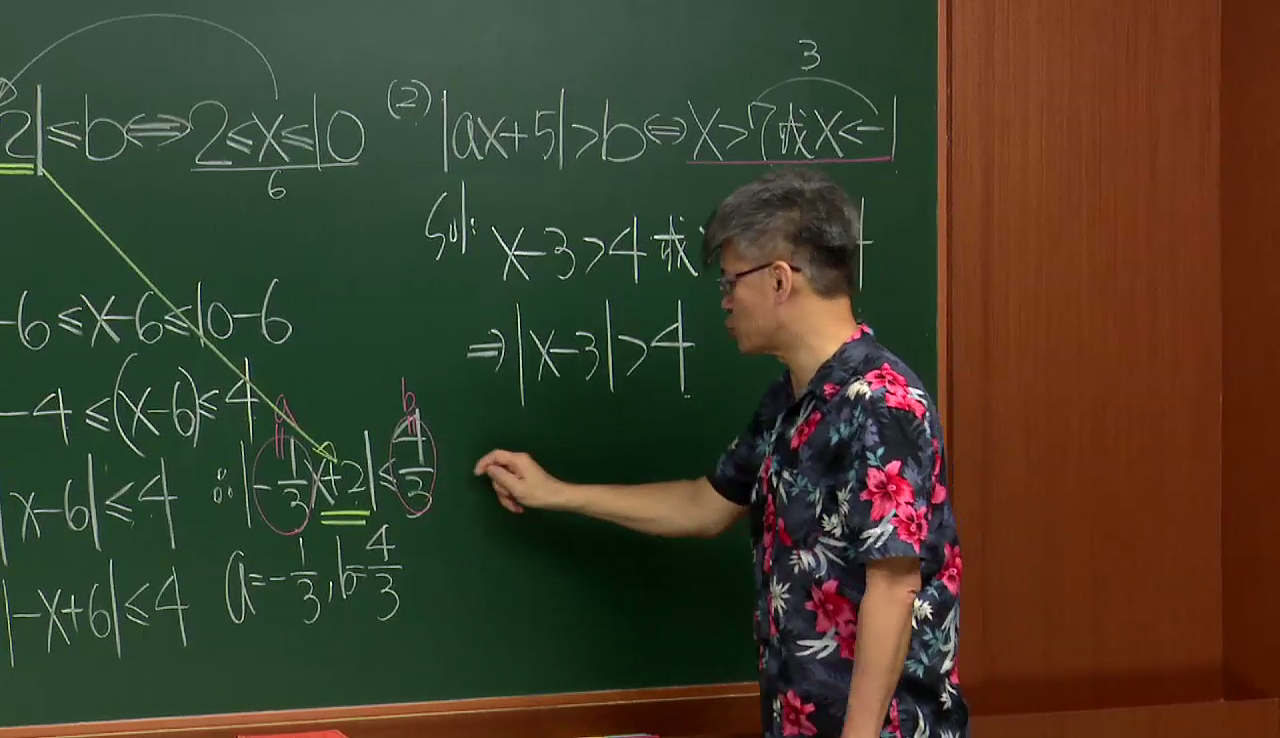 2|≤b⟺2≤x≤10
6
-6≤x-6≤10-6
-4≤(x-6)≤4
|x-6|≤4
|-x+6|≤4
a b
∴|-1/3x+2|≤4/3
a=-1/3,b=4/3
(2) |ax+5|>b⟺x>7或x<-1
3
Sol: x-3>4或
⇒|x-3|>4